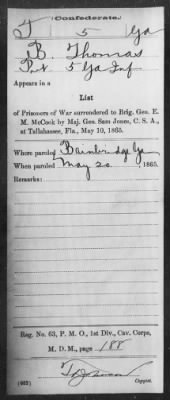 Confederate.
T 5 Ga
B. Thomas
Pvt 5 Ga Inf
Appears in a
List
of Prisoners of War surrendered to Brig. Gen. E.
M. McCook by Maj. Gen. Sam Jones, C. S. A.,
at Tallahassee, Fla., May 10, 1865.
Where paroled Bainbridge Ga
When paroled May 20, 1865.
Remarks:
Reg. No. 63, P. M. O., 1st Div., Cav. Corps,
M. D. M., page 188
Copyist.